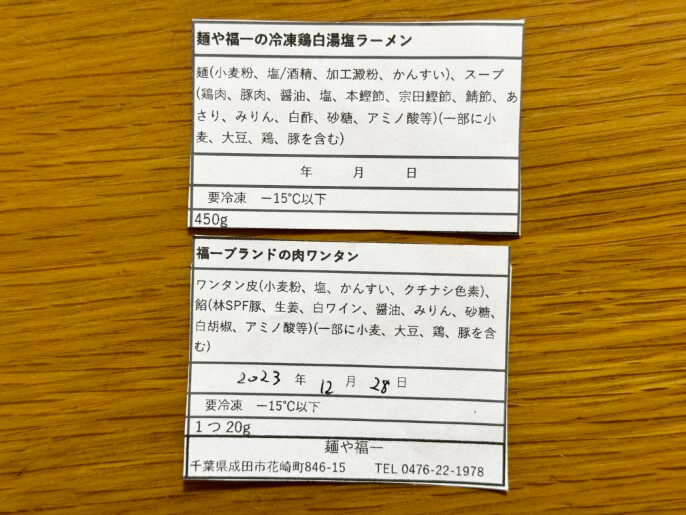 麺や福一の冷凍鶏白湯塩ラーメン
麺(小麦粉、塩/酒精、加工澱粉、かんすい)、スープ
(鶏肉、豚肉、醤油、塩、本鰹節、宗田鰹節、鯖節、あ
さり、みりん、白酢、砂糖、アミノ酸等)(一部に小
麦、大豆、鶏、豚を含む)
年 月 日
要冷凍 ー15℃以下
450g
福一ブランドの肉ワンタン
ワンタン皮(小麦粉、塩、かんすい、クチナシ色素)、
餡(林SPF豚、生姜、白ワイン、醤油、みりん、砂糖、
白胡椒、アミノ酸等)(一部に小麦、大豆、鶏、豚を含
む)
2023 年 12 月 28 日
要冷凍 ー15℃以下
1つ20g
麺や福一
千葉県成田市花崎町846-15 TEL 0476-22-1978